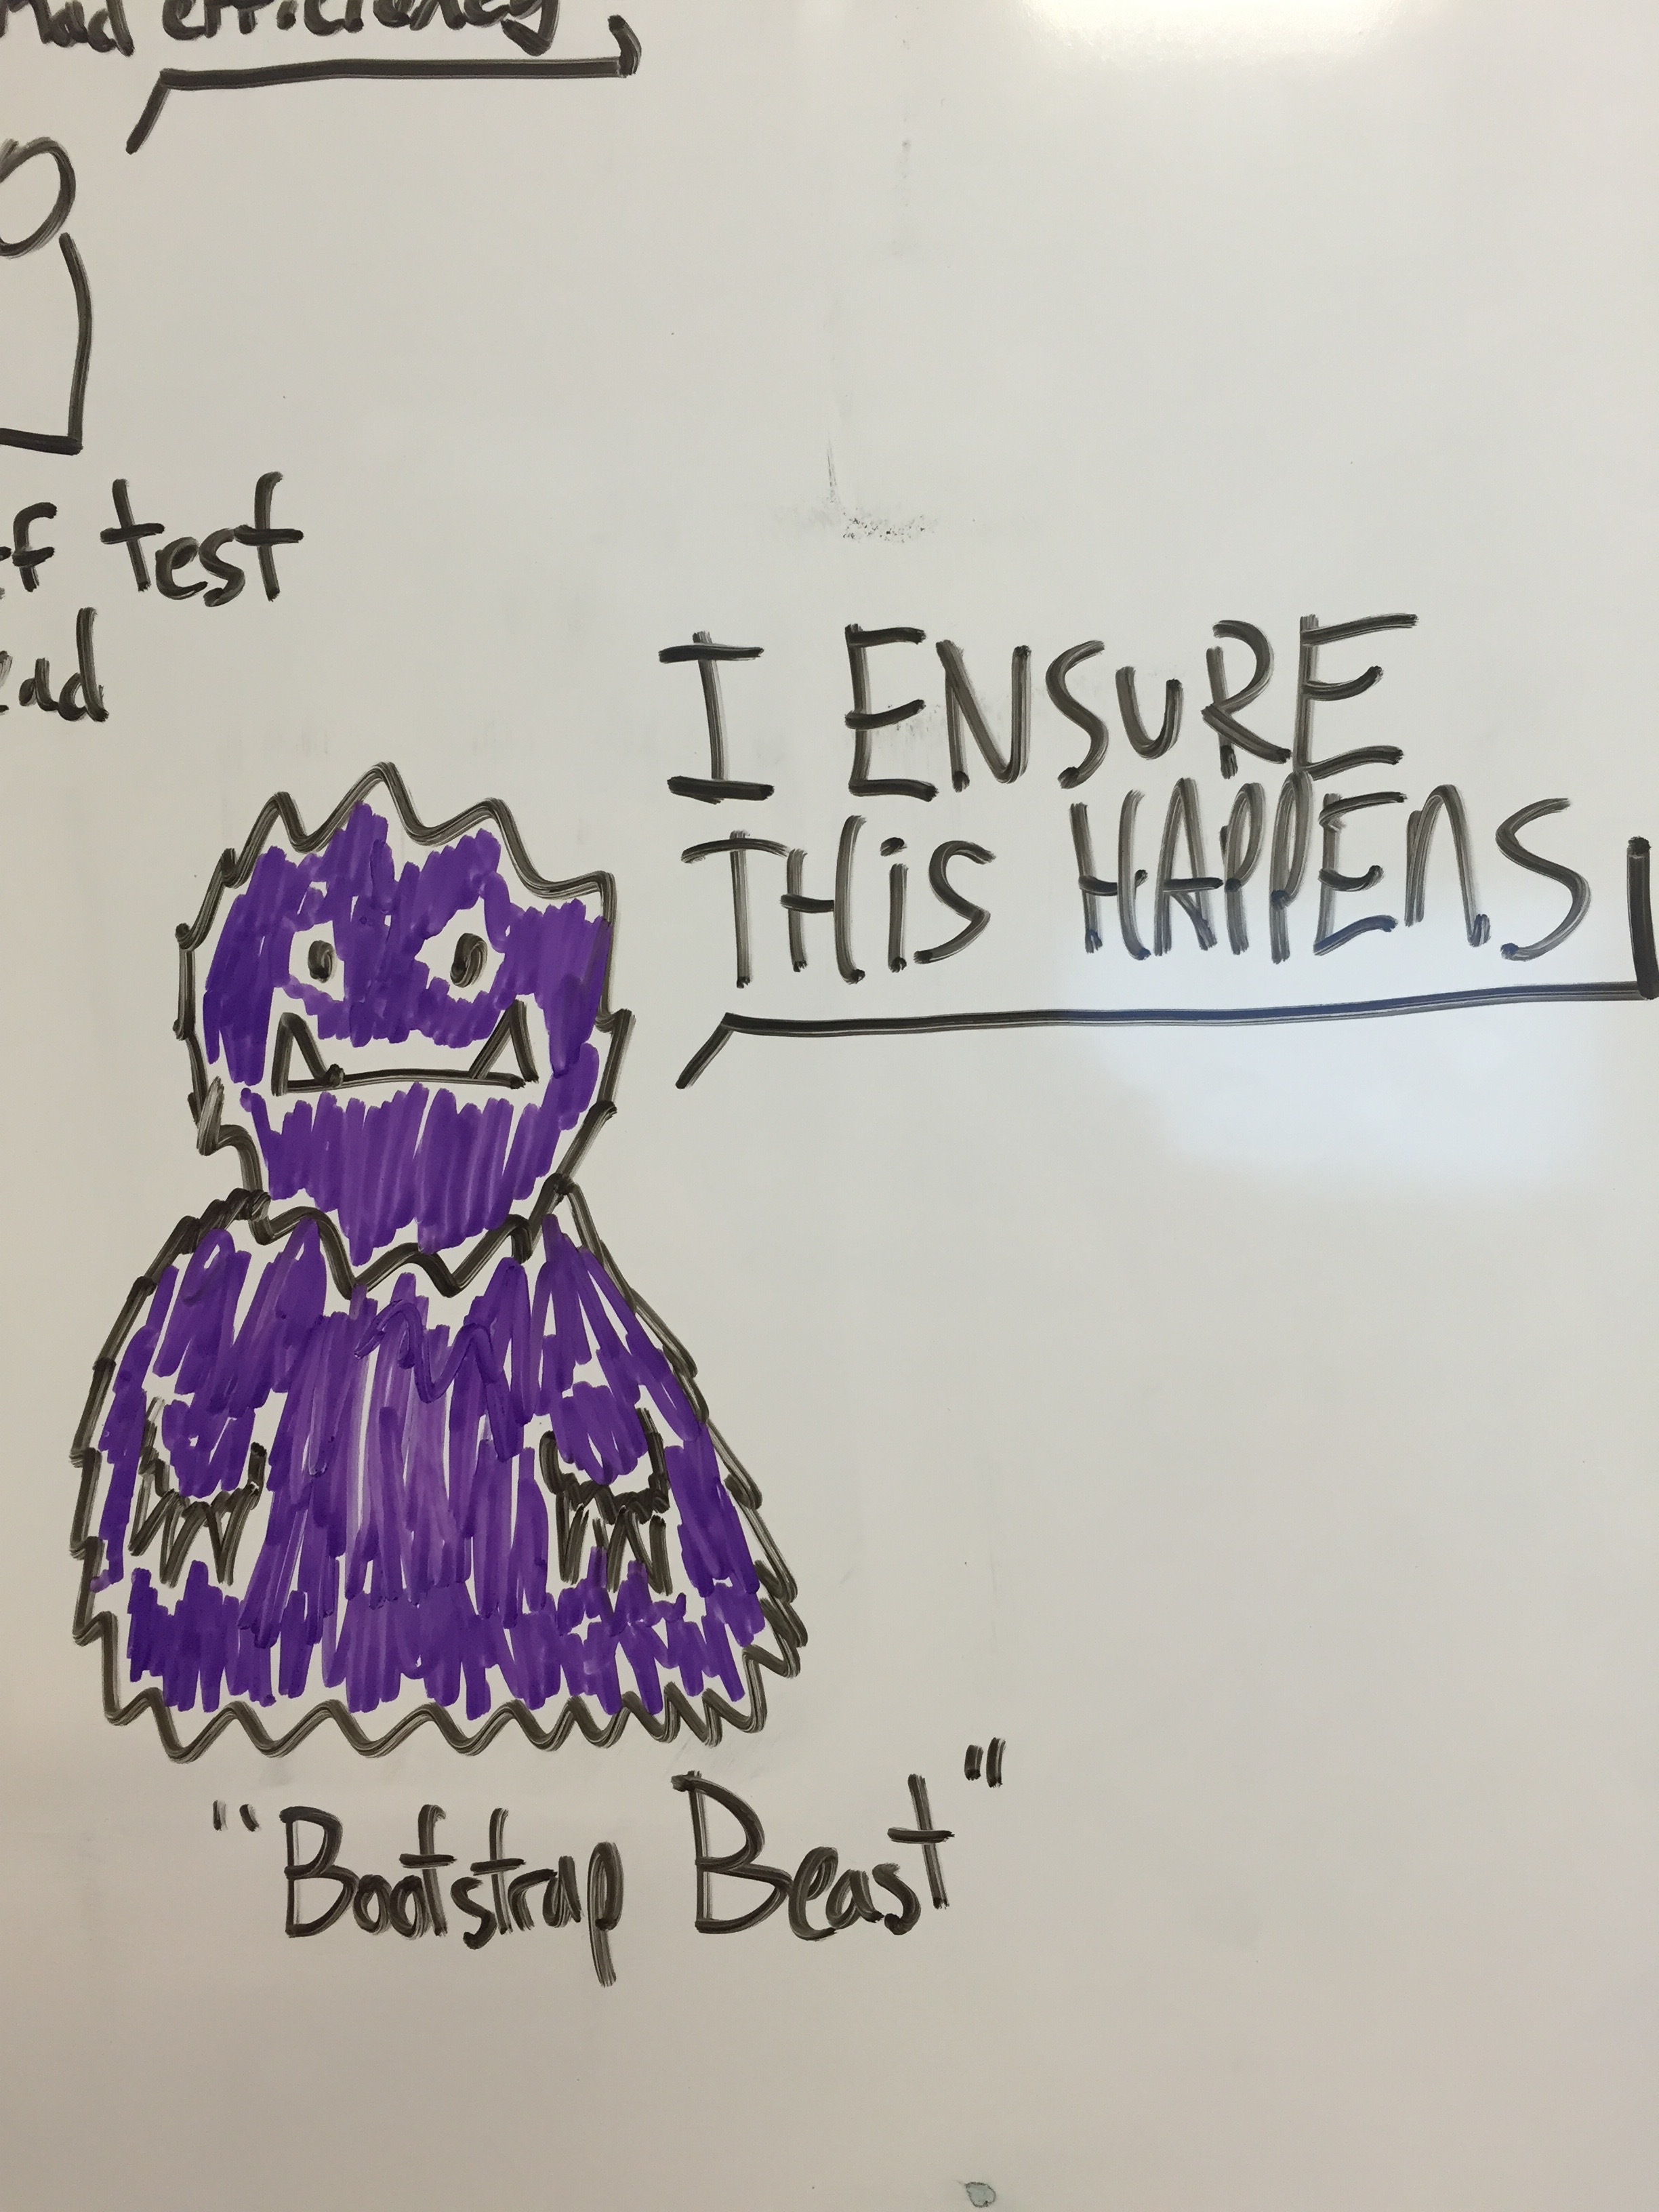 Mad efficiency
test
I ENSURE
THiS HAPPEnS
"Bootstrap Beast"